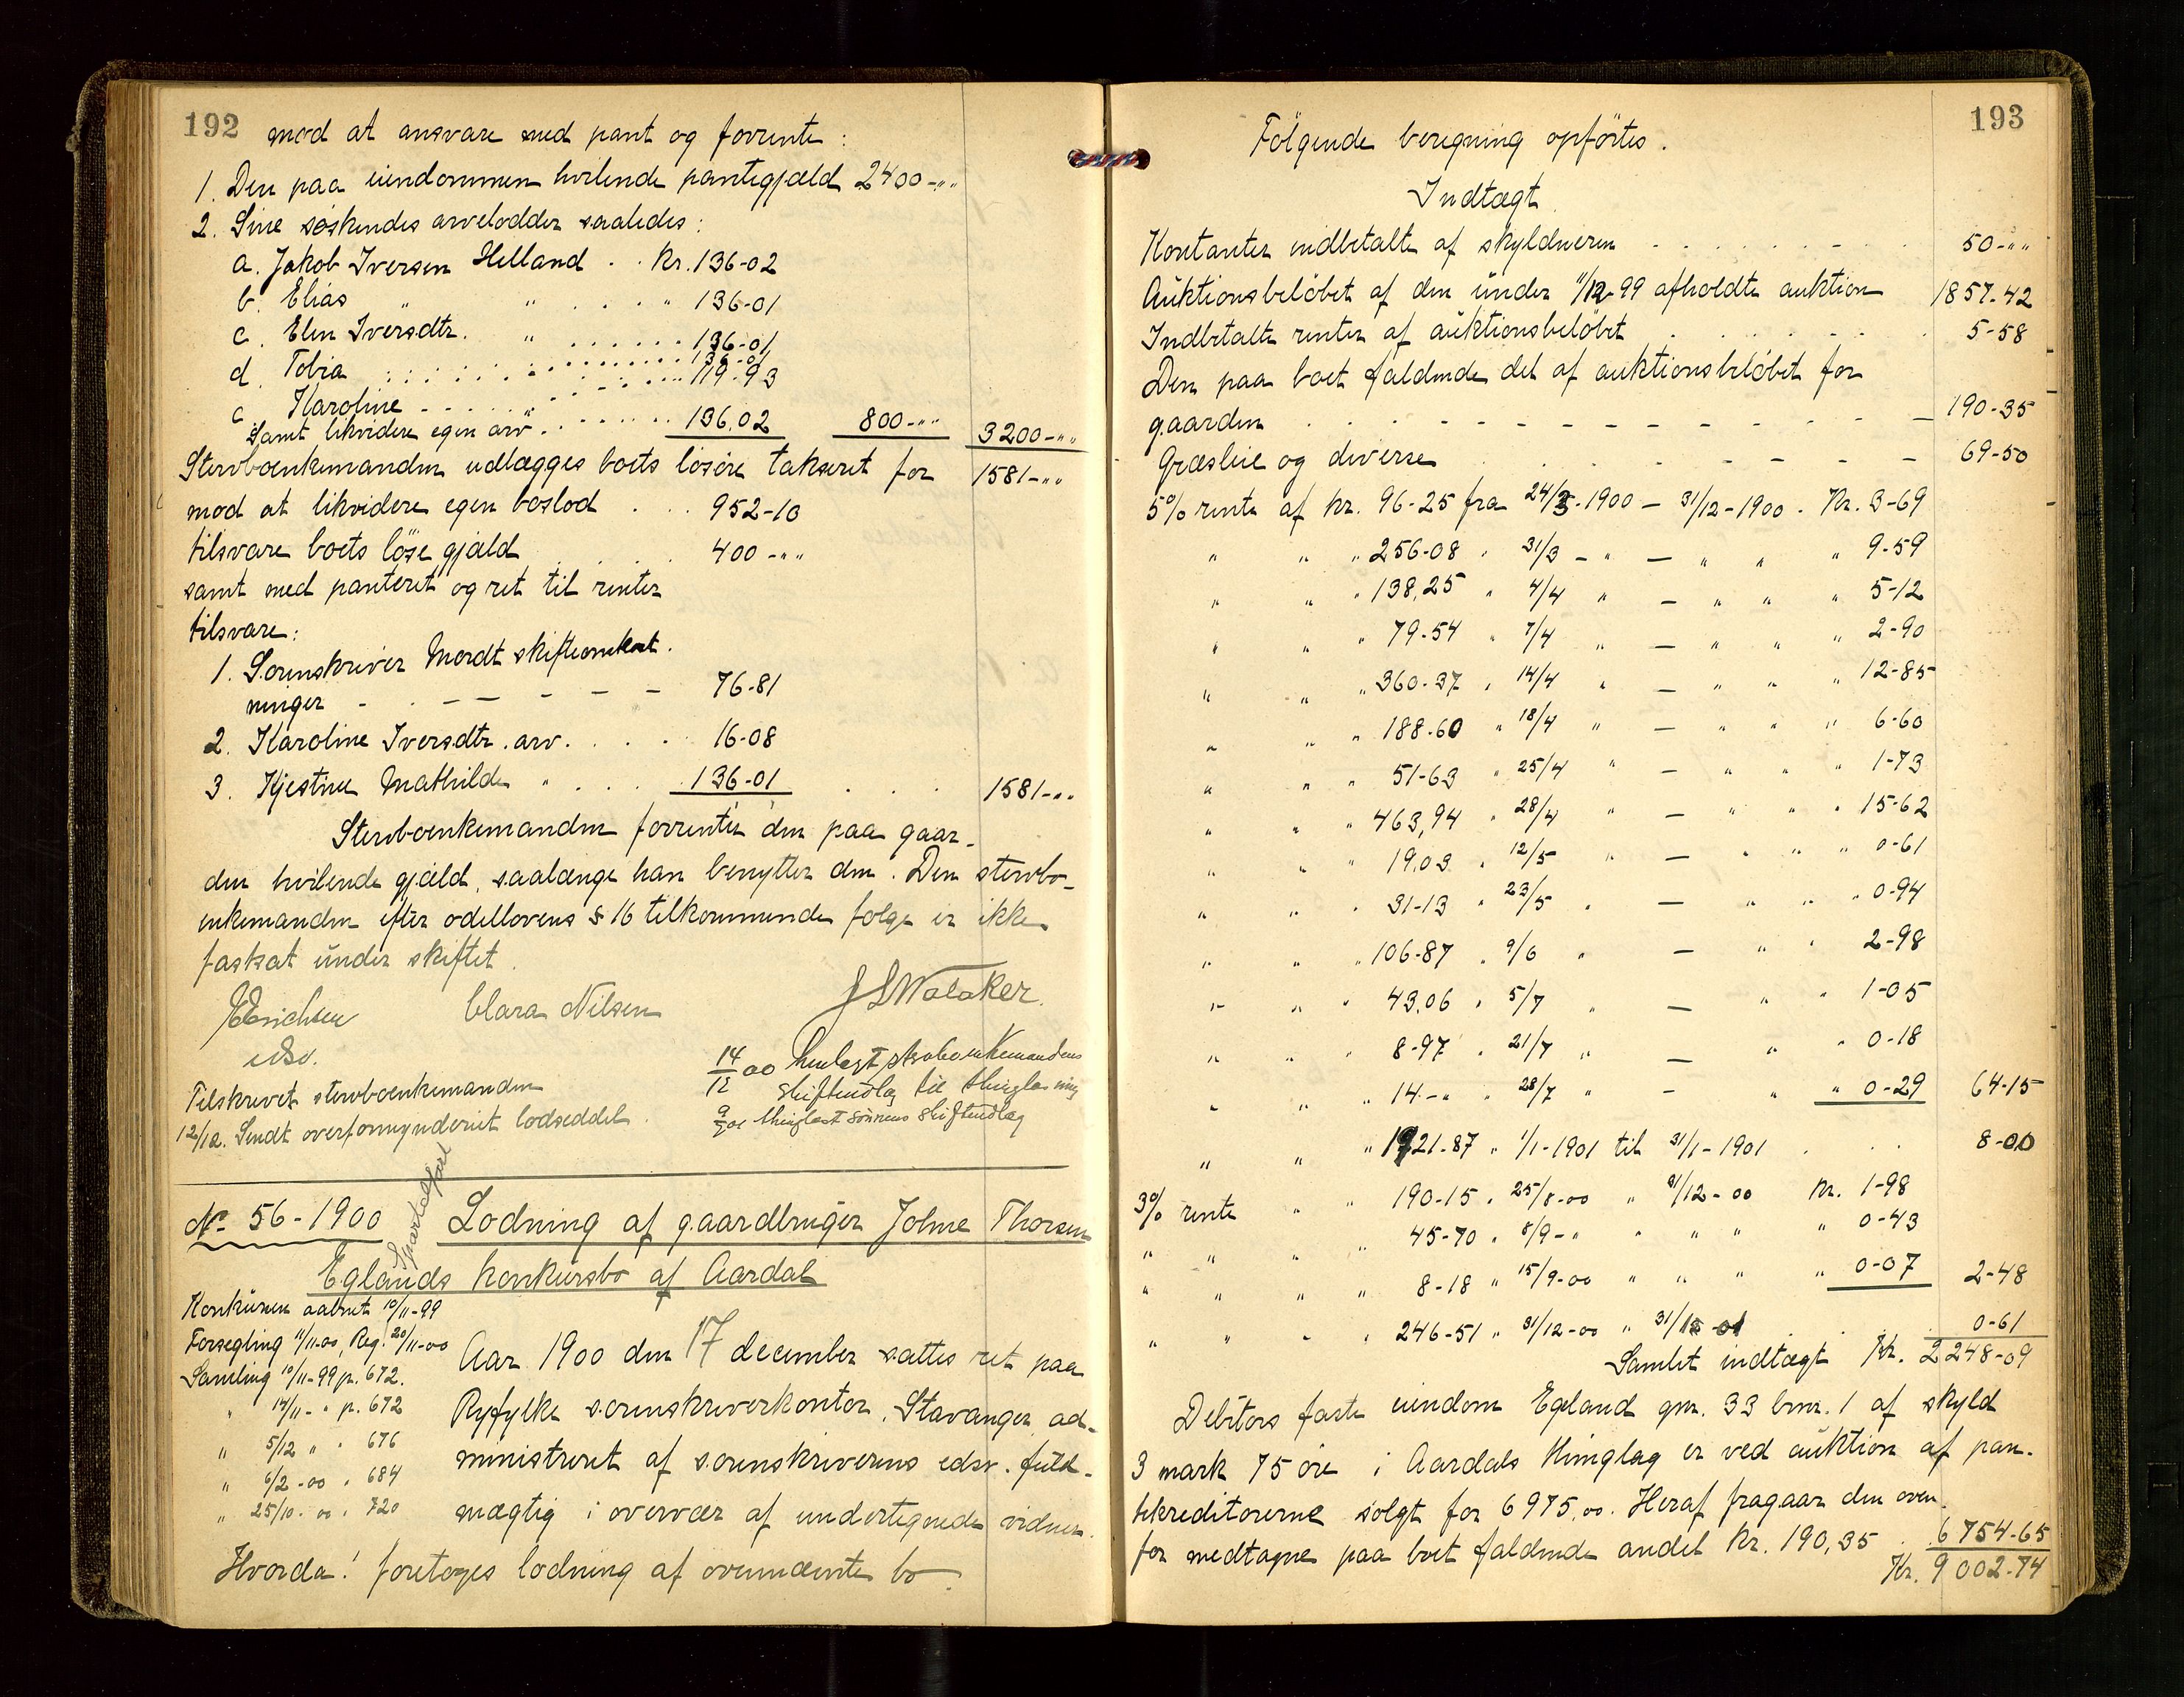 192
mod at ansvare med pant og forrente:
1. Den paa eiendommen hvilende pantegjæld 2400-"
2. Sine söskendes arvelodder saaledes:
a. Jakob Iversen Helland . . Kr. 136-02
b. Elias " " . . . " 136-01
c. Elen Iversdtr. " . . . . . . 136-01
d. Tobia . . . . . . 136-01
119-93
e Karoline . . . . . .
Samt likvidere egen arv . . . . . . 136.02 800-" 3200-"
Stervboenkemanden udlægges boets lösöre takseret for 1581-"
mod at likvidere egen boslod . . . 952-10
tilsvare boets löse gjæld . . . 400-"
samt med panteret og ret til renter
tilsvare:
1. Sorenskriver Mordt skifteomkost-
ninger - - - - - - 76-81
2. Karoline Iversdtr. arv. . . . . 16-08
3. Kjestine Mathilde " . . . 136-01 . . . 1581-"
Stervboenkemanden forrenter den paa gaar-
den hvilende gjæld, saalænge han benytter den. Den stervbo-
enkemanden efter odellovens § 16 tilkommende følge er ikke
fastsat under skiftet.
Erichsen Clara Nilsen J S Walaker.
edsv.
14/12 00 henlagt stervboenkemandens
skifteudlæg til thinglæsning
Tilskrevet stervboenkemanden
12/12. Sendt overformynderiet lodseddel.
thinglæst sönnens skifteudlæg
No 56-1900 Lodning af gaardbruger Jolme Thorsen
Eglands konkursbo af Aardal
Konkursen aabnet 10/11-99
Forsegling 11/11-00, Reg. 20/11-00
Samling 10/11-99 p. 672.
" 14/11-" p. 672
" 5/12 " " 676
" 6/2-00 " 684
" 25/10-00 " 720
Aar 1900 den 17 december sattes ret paa
Ryfylke sorenskriverkontor, Stavanger, ad-
ministreret af sorenskriverens edsv. fuld-
mægtig i overvær af undertegnede vidner.
Hvorda! foretoges lodning af ovennævnte bo.
193
Fölgende beregning opförtes.
Indtægt
Kontanter indbetalt af skyldneren . . . . . . 50-"
Auktionsbelöbet af den under 11/12-99 afholdte auktion 1857-42
Indbetalte renter af auktionsbelöbet . . . . . 5-58
Den paa boet faldende del af auktionsbelöbet for
gaarden . . - - - - - - 190-35
Græsleie og diverse . . . - - - 69-50
5% rente af kr. 96-25 fra 24/3-1900 — 31/12-1900 . Kr. 3-69
" " " 256-08 " 31/3 - " — " " " 9-59
" " " 138,25 " 4/4 " — " " " 5-12
" " " 79-54 " 7/4 " — " " " 2-90
" " " 360-37 " 14/4 " — " " " 12-85
" " " 188-60 " 18/4 " — " " " 6-60
" " " 51-63 " 25/4 " — " " " 1-73
" " " 463,94 " 28/4 " — " " " 15-62
" " " 19,03 " 12/5 " — " " " 0-61
" " " 31-13 " 23/5 " — " " " 0-94
" " " 106-87 " 9/6 " — " " 2-98
" " " 43,06 " 5/7 " — " " 1-05
" " " 8-97 " 21/7 " — " " 0-18
" " " 14-" " 28/7 " — " " 0-29 64-15
" " " 1921-87 " 1/1-1901 til 31/1-1901 . . . 8-00
3% rente " " 190-15 " 25/8-00 " 31/12-00 Kr. 1-98
" " " " 45-70 " 8/9-" " " " " 0-43
" " " " 8-18 " 15/9-00 " " " " 0-07 2-48
" " " " 246-51 " 31/12-00 " 31/1-01 . . 0-61
Samlet indtægt Kr. 2248-09
Debitors faste eiendom Egeland gnr. 33 bnr. 1 af skyld
3 mark 75 öre i Aardals thinglag er ved auktion af pan-
tekreditorerne solgt for 6975,00. Heraf fragaar den oven-
for medtagne paa boet faldende andel kr. 190,35 . . 6754-65
Kr. 9002-74